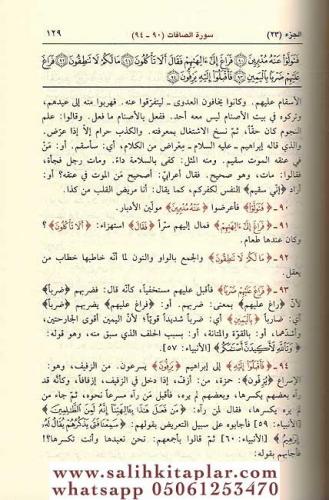 الجزء (٢٣) سورة الصافات (٩٠ - ٩٤) ١٢٩
فَتَوَلَّوْا عَنْهُ مُدْبِرِينَ ﴿٩٠﴾ فَرَاغَ إِلَىٰ آلِهَتِهِمْ فَقَالَ أَلَا تَأْكُلُونَ ﴿٩١﴾ مَا لَكُمْ لَا تَنطِقُونَ ﴿٩٢﴾ فَرَاغَ
عَلَيْهِمْ ضَرْبًا بِالْيَمِينِ ﴿٩٣﴾ فَأَقْبَلُوا إِلَيْهِ يَزِفُّونَ ﴿٩٤﴾
الأسقام عليهم. وكانوا يخافون العدوى - ليتفرّقوا عنه. فهربوا منه إلى عيدهم،
وتركوه في بيت الأصنام ليس معه أحد. ففعل بالأصنام ما فعل. وقالوا: علم
النجوم كان حقّاً، ثمّ نسخ الاشتغال بمعرفته. والكذب حرام إلّا إذا عرّض.
والذي قاله إبراهيم - عليه السلام - معراض من الكلام، أي: سأسقم. أو: مَنْ
في عنقه الموت سقيم. ومنه المثل: كفى بالسلامة داءً. ومات رجل فجأة،
فقالوا: مات، وهو صحيح. فقال أعرابيّ: أصحيح مَن الموت في عنقه؟ أو:
أراد ﴿إني سقيم﴾ النفس لكفركم، كما يقال: أنا مريض القلب من كذا.
٩٠ - ﴿فَتَوَلَّوْا﴾ فأعرضوا ﴿عَنْهُ مُدْبِرِينَ﴾ مولّين الأدبار.
٩١ - ﴿فَرَاغَ إِلَىٰ آلِهَتِهِمْ﴾ فمال إليهم سرّاً ﴿فَقَالَ﴾ استهزاء: ﴿أَلَا تَأْكُلُونَ﴾؟
وكان عندها طعام.
٩٢ - ﴿مَا لَكُمْ لَا تَنطِقُونَ﴾ والجمع بالواو والنون لما أنّه خاطبها خطاب من
يعقل.
٩٣ - ﴿فَرَاغَ عَلَيْهِمْ ضَرْبًا﴾ فأقبل عليهم مستخفياً، كأنّه قال: فضربهم ﴿ضرباً﴾
لأنّ ﴿راغ عليهم﴾ بمعنى: ضربهم. أو: ﴿فراغ عليهم﴾ يضربهم ﴿ضرباً﴾
أي: ضارباً ﴿بِالْيَمِينِ﴾ أي: ضرباً شديداً قويّاً؛ لأنّ اليمين أقوى الجارحتين،
وأشدّهما، أو: بالقوّة والمتانة، أو: بسبب الحلف الذي سبق منه، وهو قوله:
﴿وَتَاللَّهِ لَأَكِيدَنَّ أَصْنَامَكُمْ﴾ [الأنبياء: ٥٧].
٩٤ - ﴿فَأَقْبَلُوا إِلَيْهِ﴾ إلى إبراهيم ﴿يَزِفُّونَ﴾ يسرعون. من الزفيف، وهو:
الإسراع ﴿يُزِفُّونَ﴾: حمزة، من: أزفّ، إذا دخل في الزفيف، إزفافاً، وكأنّه قد
رآه بعضهم يكسرها، وبعضهم لم يره، فأقبل مَن رآه مسرعاً نحوه، ثمّ جاء من
لم يره يكسرها، فقال لمن رآه: ﴿مَن فَعَلَ هَٰذَا بِآلِهَتِنَا إِنَّهُ لَمِنَ الظَّالِمِينَ﴾
[الأنبياء: ٥٩] فأجابوه على سبيل التعريض بقولهم: ﴿سَمِعْنَا فَتًى يَذْكُرُهُمْ يُقَالُ لَهُ
إِبْرَاهِيمُ﴾ [الأنبياء: ٦٠] ثمّ قالوا بأجمعهم: نحن نعبدها وأنت تكسرها؟!
فأجابهم بقوله:
www.salihkitaplar.com
whatsapp 05061253470